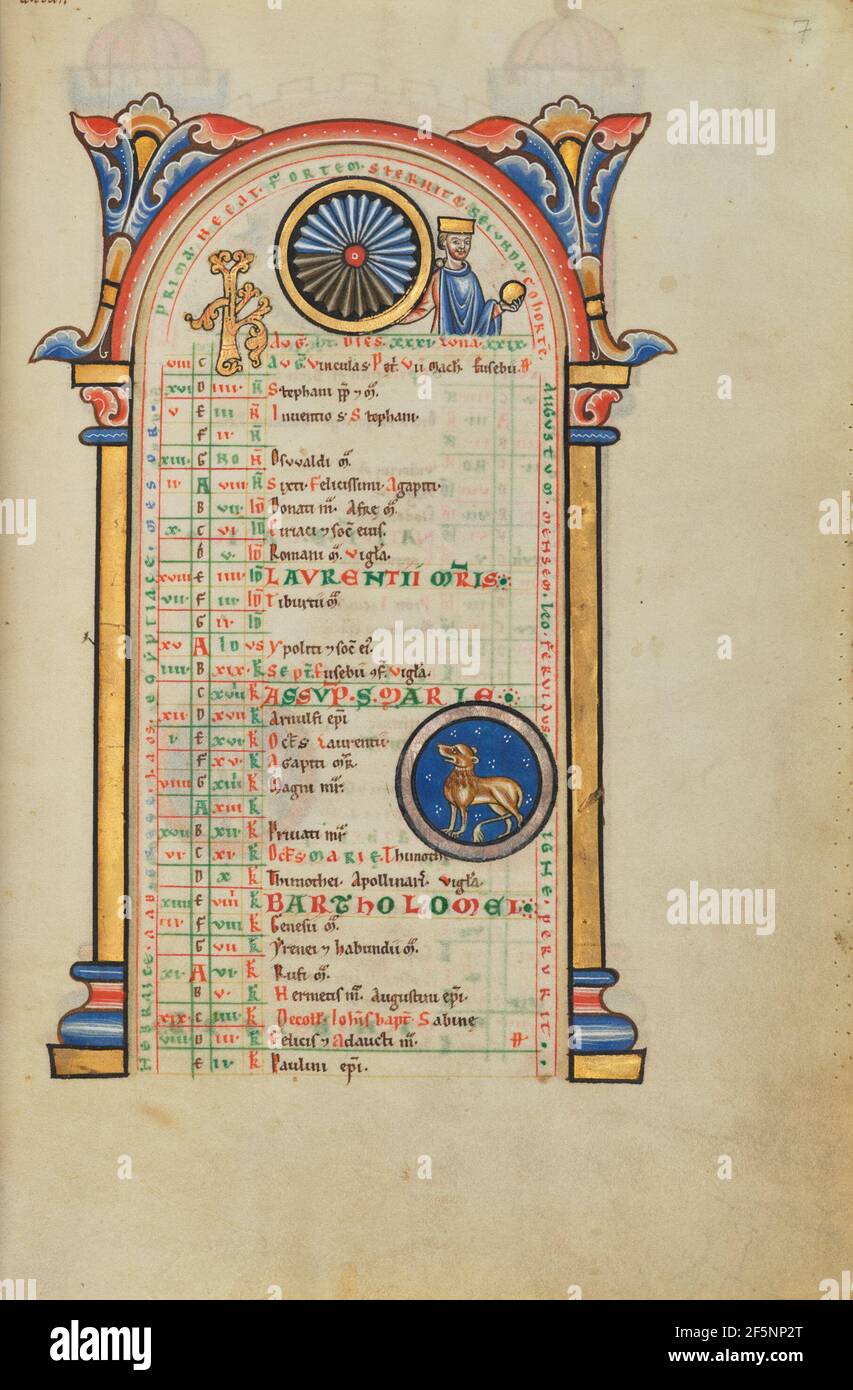 7
PRIMA NECAT FORTEM STERNITQ SECUNDA COHORTE
AVG̅ hт DIES XXXI LUNA XXIX
viii C AVG̅ Vincula S Pet̅ Vii Mach Eusebii
xvi D iiii N̅ Stephani pp̅ ⁊ m̅
v E iii N̅ Inventio S Stephani
F ii N̅
xiii G NO N̅ Osvvaldi m̅
ii A viii N̅ Sixti Felicissimi Agapiti
B vii ID̅ Donati m̅ Afre m̅
x C vi ID̅ Ciriaci ⁊ soc̅ eius
D v ID̅ Romani m̅ vigl̅a
xviii E iiii ID̅ LAVRENTII MR̅IS
vii F iii ID̅ Tiburtii m̅
G ii ID̅
xv A IDVS Ypoliti ⁊ soc̅ ei
iiii B xix K Sept̅ Eusebii ꝯf̅ vigl̅a
C xviii K ASSVP̅ S MARIE
xii D xvii K Arnulfi ep̅i
i E xvi K Oct̅s Laurentii
F xv K Agapiti m̅r
viiii G xiiii K Magni m̅r
A xiii K
xvii B xii K Privati m̅r
vi C xi K Oct̅s MARIE Thimothe
D x K Thimothei Apollinar̅ vigl̅a
xiiii E viiii K BARTHOLOMEI
iii F viii K Genesii m̅
G vii K Yrenei ⁊ habundii m̅
xi A vi K Rufi m̅
B v K Hermetis m̅ Augustini ep̅i
xix C iiii K Decoll̅ Ioh̅is bapt̅ Sabine
viii D iii K Felicis ⁊ Adaucti m̅
E ii K Paulini ep̅i
AUGUSTUM MENSEM LEO FERVIDUS IGNE PERURIT
alamy
a
Image ID: 2F5NP2T
www.alamy.com